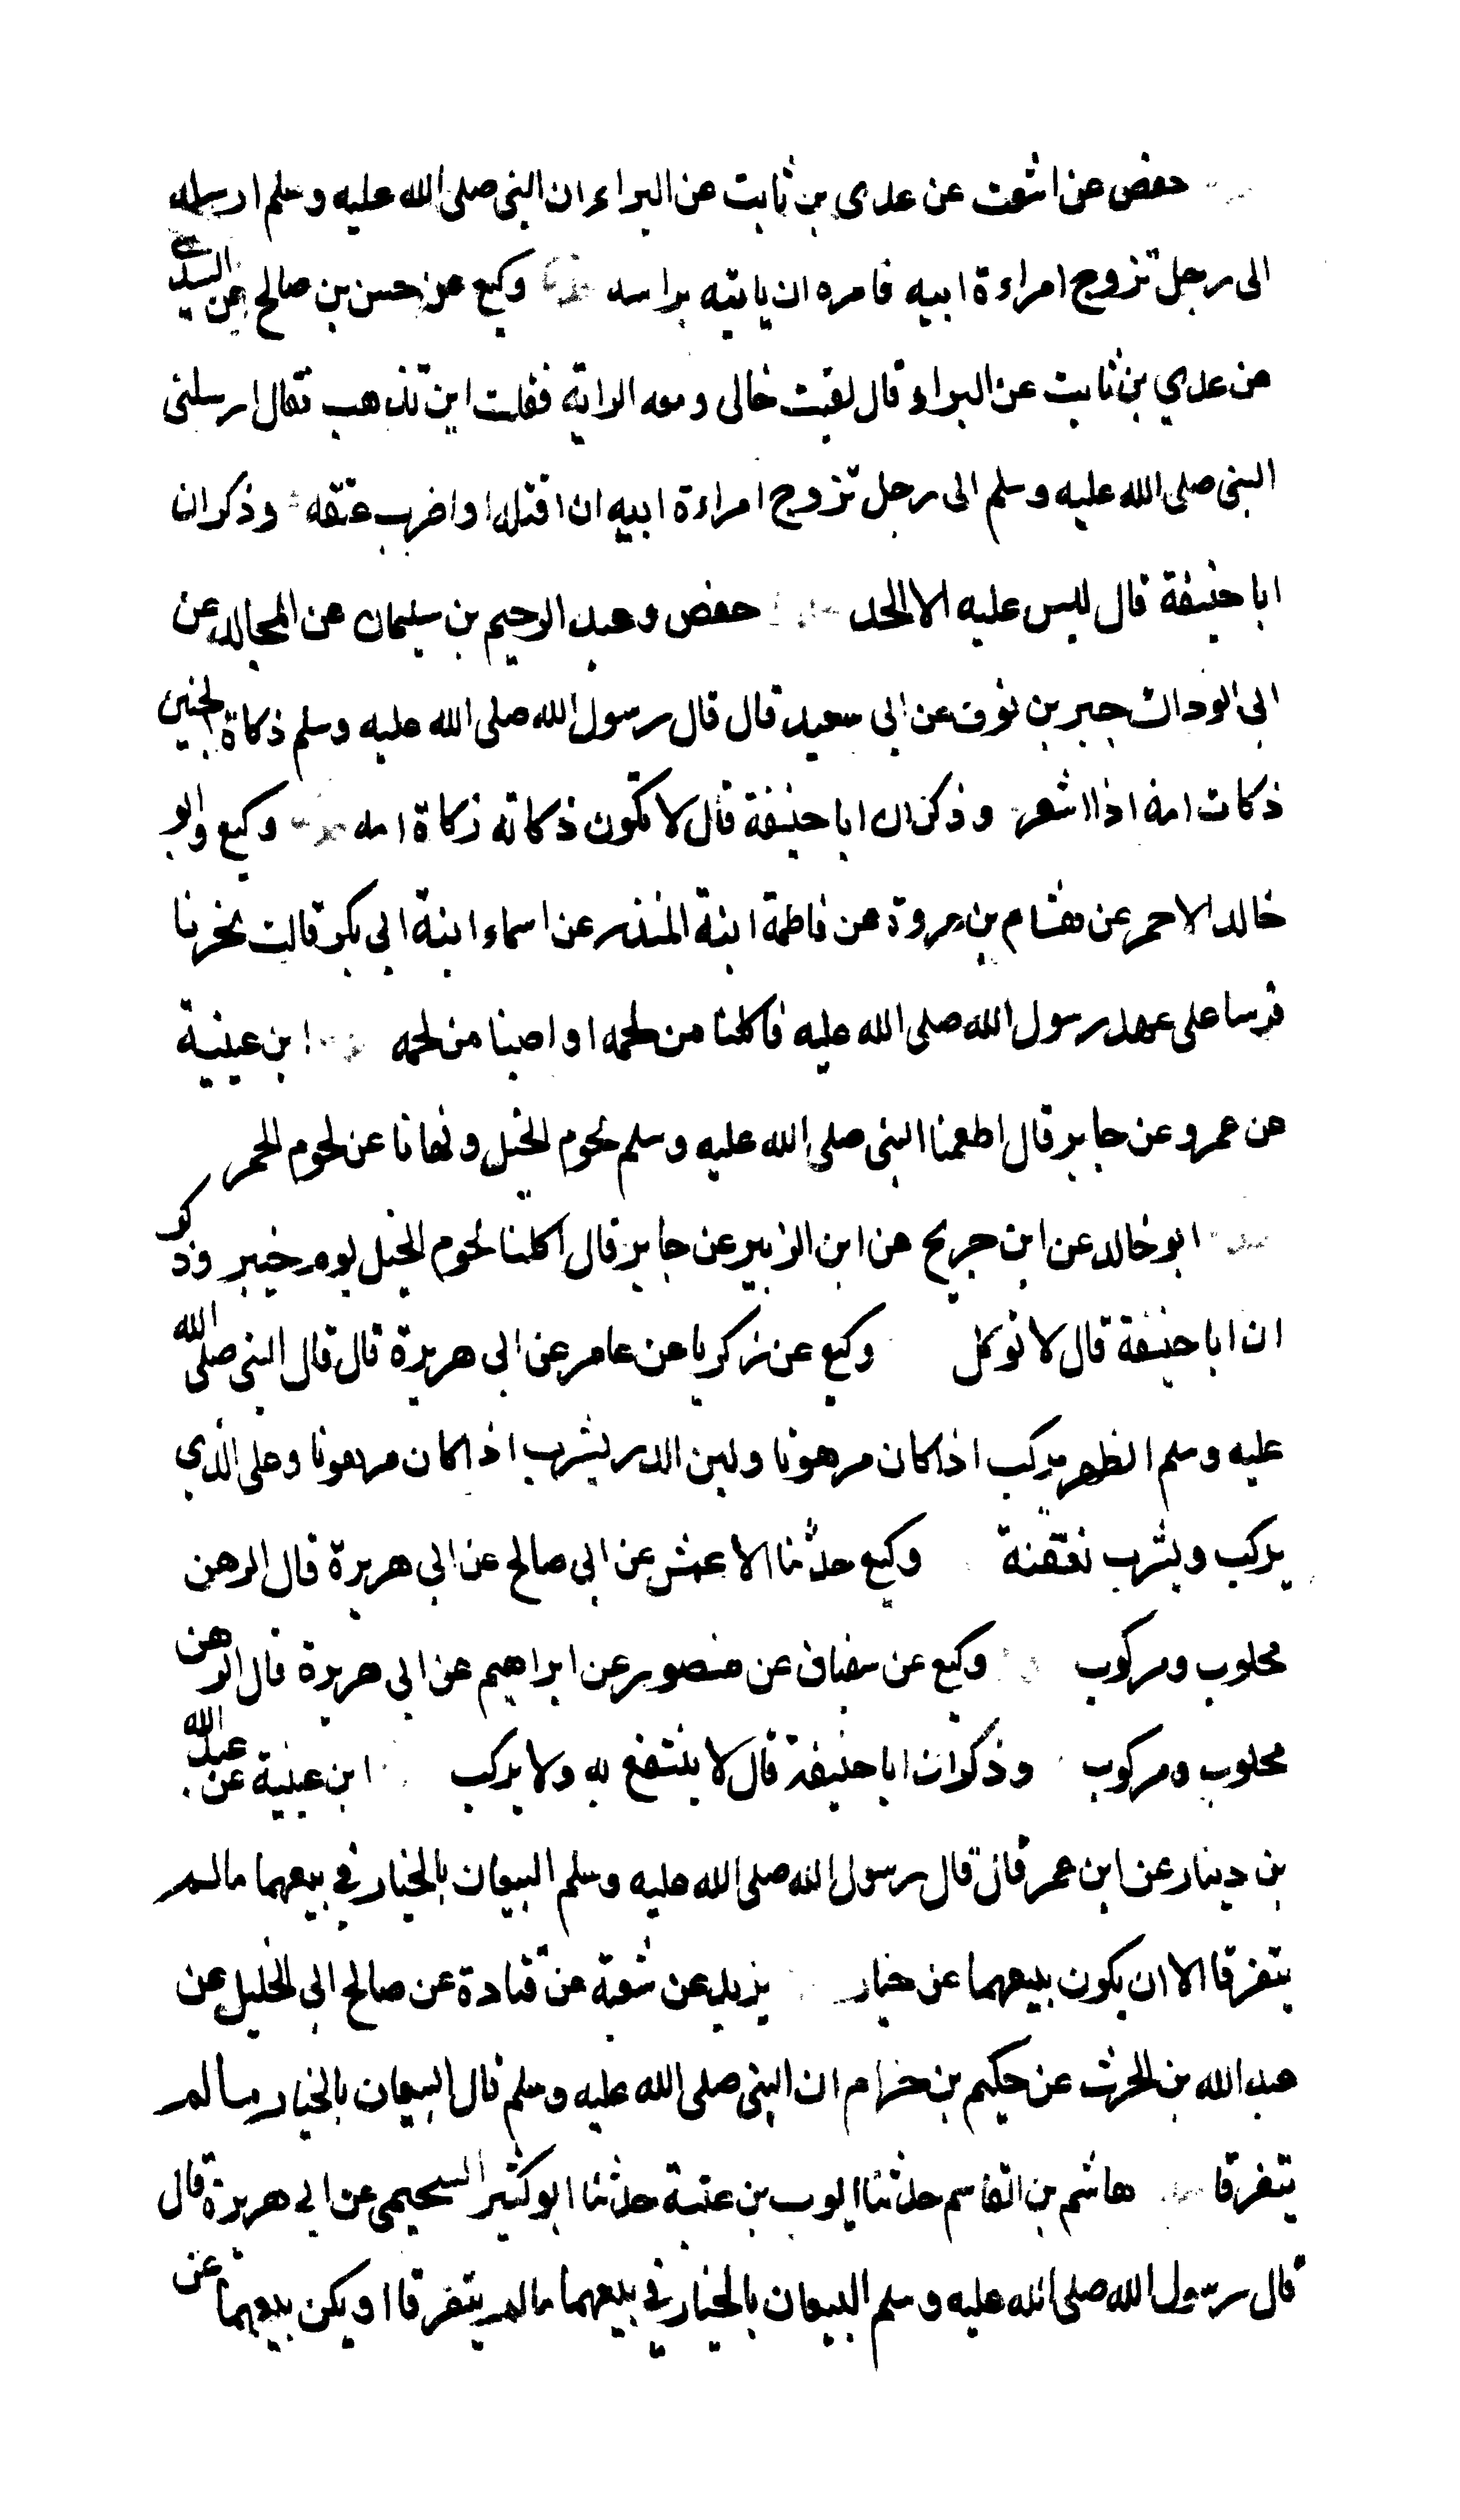 حفص عن اشعث عن عدى بن ثابت عن البراء ان النبى صلى الله عليه وسلم ارسله
الى رجل تزوج امراءة ابيه فامره ان ياتيه براسه وكيع عن حسن بن صالح عن السدي
عن عدي بن ثابت عن البراء قال لقيت خالى ومعه الراية فقلت اين تذهب فقال ارسلنى
النبى صلى الله عليه وسلم الى رجل تزوج امراءة ابيه ان اقتله او اضرب عنقه وذكر ان
ابا حنيفة قال ليس عليه الا الحد حفص وعبد الرحيم بن سليمان عن المجالد عن
ابى الوداك جبر بن نوف عن ابى سعيد قال قال رسول الله صلى الله عليه وسلم ذكاة الجنين
ذكات امه اذا اشعر وذكر ان ابا حنيفة قال لا تكون ذكاته ذكاة امه وكيع وابو
خالد الاحمر عن هشام بن عروة عن فاطمة ابنة المنذر عن اسماء ابنة ابى بكر قالت نحرنا
فرسا على عهد رسول الله صلى الله عليه فاكلنا من لحمه او اصبنا من لحمه ابن عيينة
عن عمرو عن جابر قال اطعمنا النبى صلى الله عليه وسلم لحوم الخيل ونهانا عن لحوم الحمر
ابو خالد عن ابن جريج عن ابن الزبير عن جابر قال اكلنا لحوم الخيل يوم خيبر وذكر
ان ابا حنيفة قال لا توكل وكيع عن زكريا عن عامر عن ابى هريرة قال قال النبى صلى الله
عليه وسلم الظهر يركب اذا كان مرهونا ولبن الدر يشرب اذا كان مرهونا وعلى الذي
يركب ويشرب نفقته وكيع حدثنا الاعمش عن ابى صالح عن ابى هريرة قال الرهن
محلوب ومركوب وكيع عن سفيان عن منصور عن ابراهيم عن ابى هريرة قال الرهن
محلوب ومركوب وذكر ان ابا حنيفة قال لا ينتفع به ولا يركب ابن عيينة عن عبد الله
بن دينار عن ابن عمر قال قال رسول الله صلى الله عليه وسلم البيعان بالخيار في بيعهما مالم
يتفرقا الا ان يكون بيعهما عن خيار يزيد عن شعبة عن قتادة عن صالح ابى الخليل عن
عبد الله بن الحرث عن حكيم بن حزام ان النبى صلى الله عليه وسلم قال البيعان بالخيار مالم
يتفرقا هاشم بن القاسم حدثنا ايوب بن عتبة حدثنا ابو كثير السحيمى عن ابى هريرة قال
قال رسول الله صلى الله عليه وسلم البيعان بالخيار في بيعهما مالم يتفرقا او يكن بيعهما عن